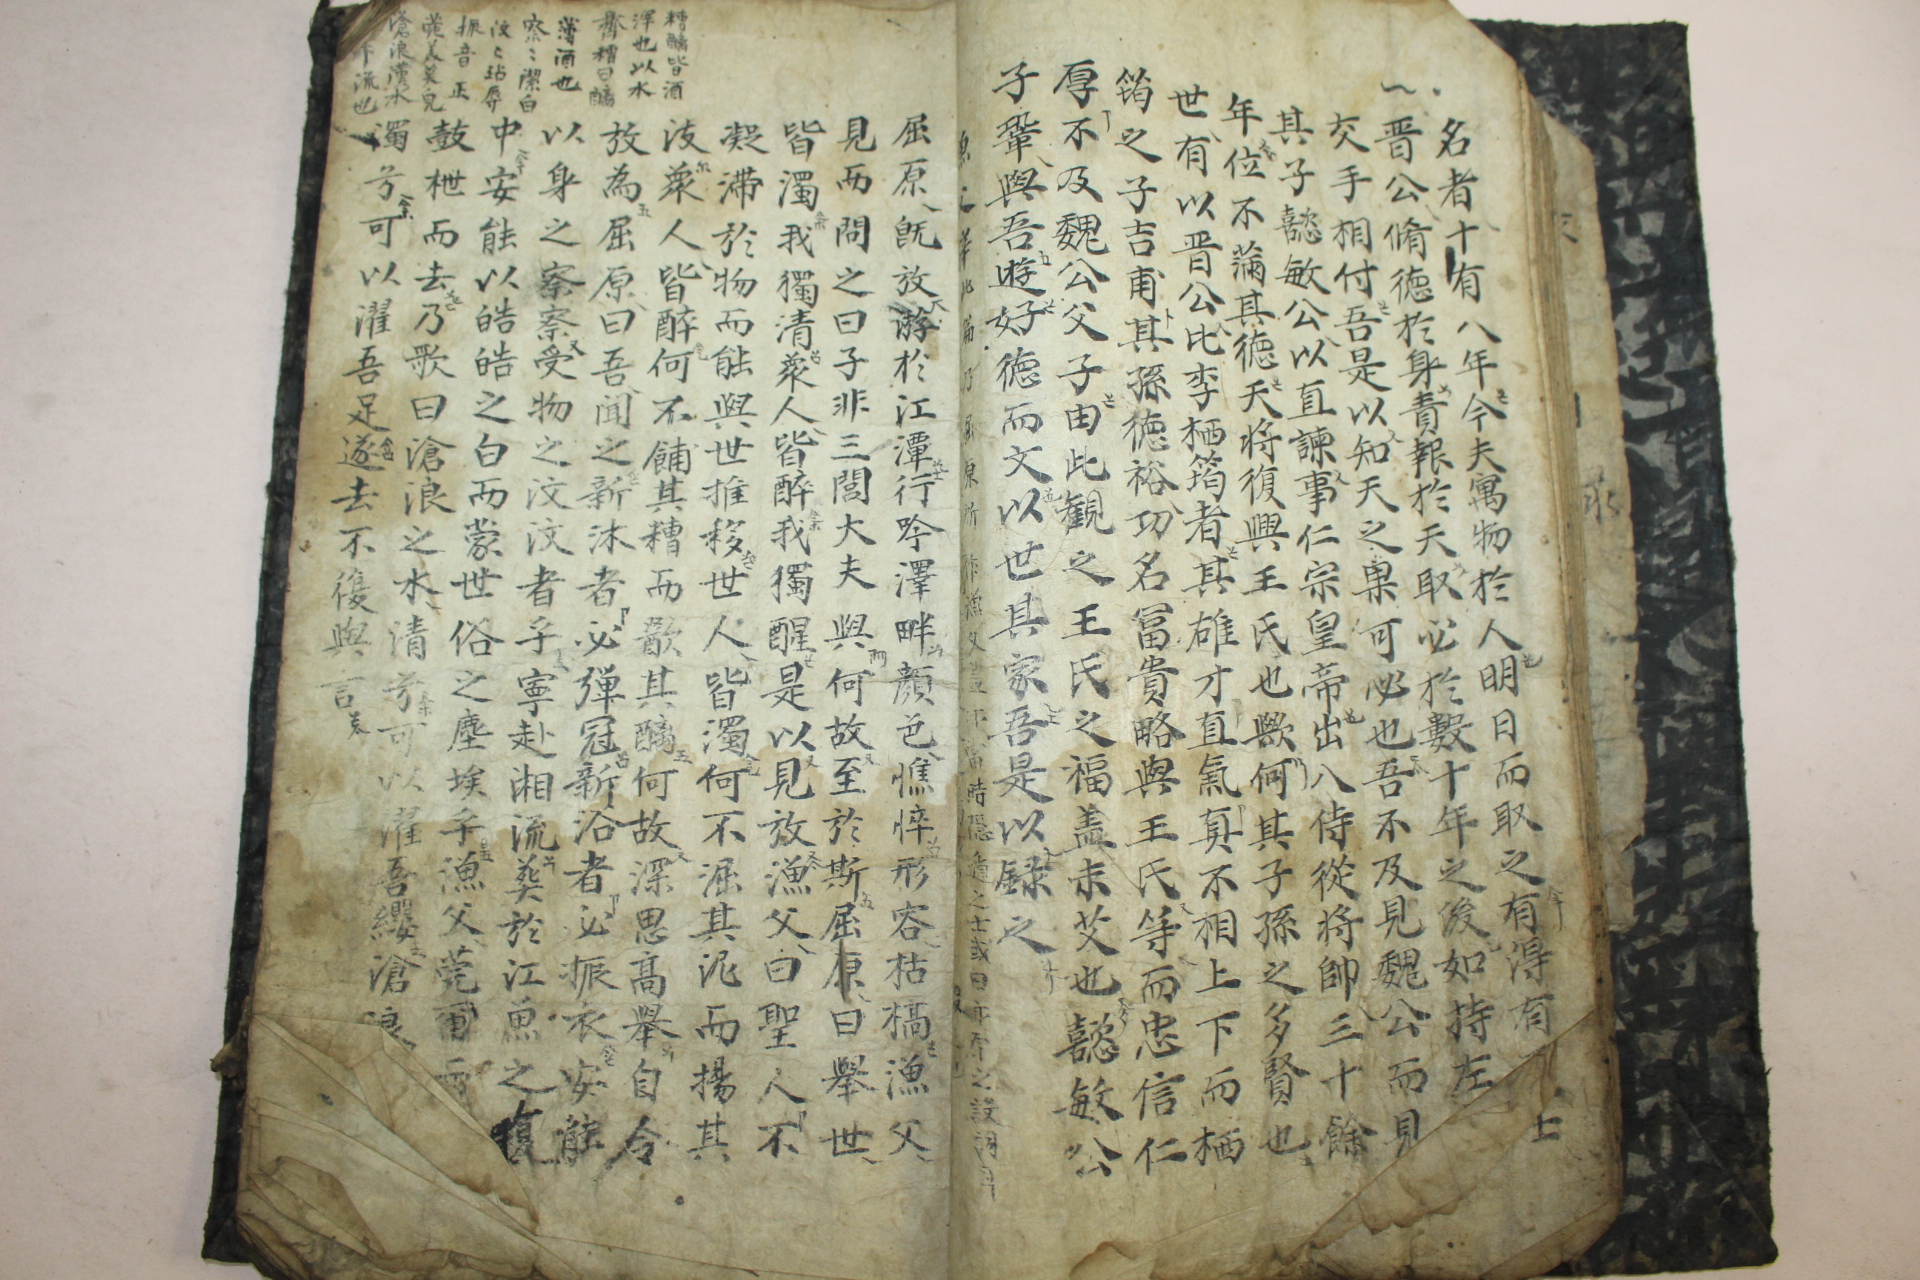 名者十有八年今夫寓物於人明日而取之有得有
晋公脩德於身責報於天取必於數十年之後如持左
交手相付吾是以知天之果可必也吾不及見魏公而見
其子懿敏公以直諫事仁宗皇帝出入侍從將帥三十餘
年位不滿其德天將復興王氏也歟何其子孫之多賢也
世有以晋公比李栖筠者其雄才直氣真不相上下而栖
筠之子吉甫其孫德裕功名冨貴略與王氏等而忠信仁
厚不及魏公父子由此觀之王氏之福盖未艾也懿敏公
子鞏與吾遊好德而文以世其家吾是以録之
此篇乃屈原所作漁父盖
時隱遁之士或曰亦原之設詞
屈原既放游於江潭行吟澤畔顔色憔悴形容枯槁漁父
見而問之曰子非三閭大夫與何故至於斯屈原曰舉世
皆濁我獨清衆人皆醉我獨醒是以見放漁父曰聖人不
凝滯於物而能與世推移世人皆濁何不淈其泥而揚其
波衆人皆醉何不餔其糟而歠其醨何故深思高舉自令
放為屈原曰吾聞之新沐者必彈冠新浴者必振衣安能
以身之察察受物之汶汶者乎寧赴湘流葬於江魚之復
中安能以皓皓之白而蒙世俗之塵埃乎漁父莞爾而
鼓枻而去乃歌曰滄浪之水清兮可以濯吾纓滄浪
濁兮可以濯吾足遂去不復與言
糟醨皆酒
滓也以水
虀糟曰醨
薄酒也
察〻潔白
汶〻玷辱
振音正
莞美㒵皃
滄浪漢水
流也